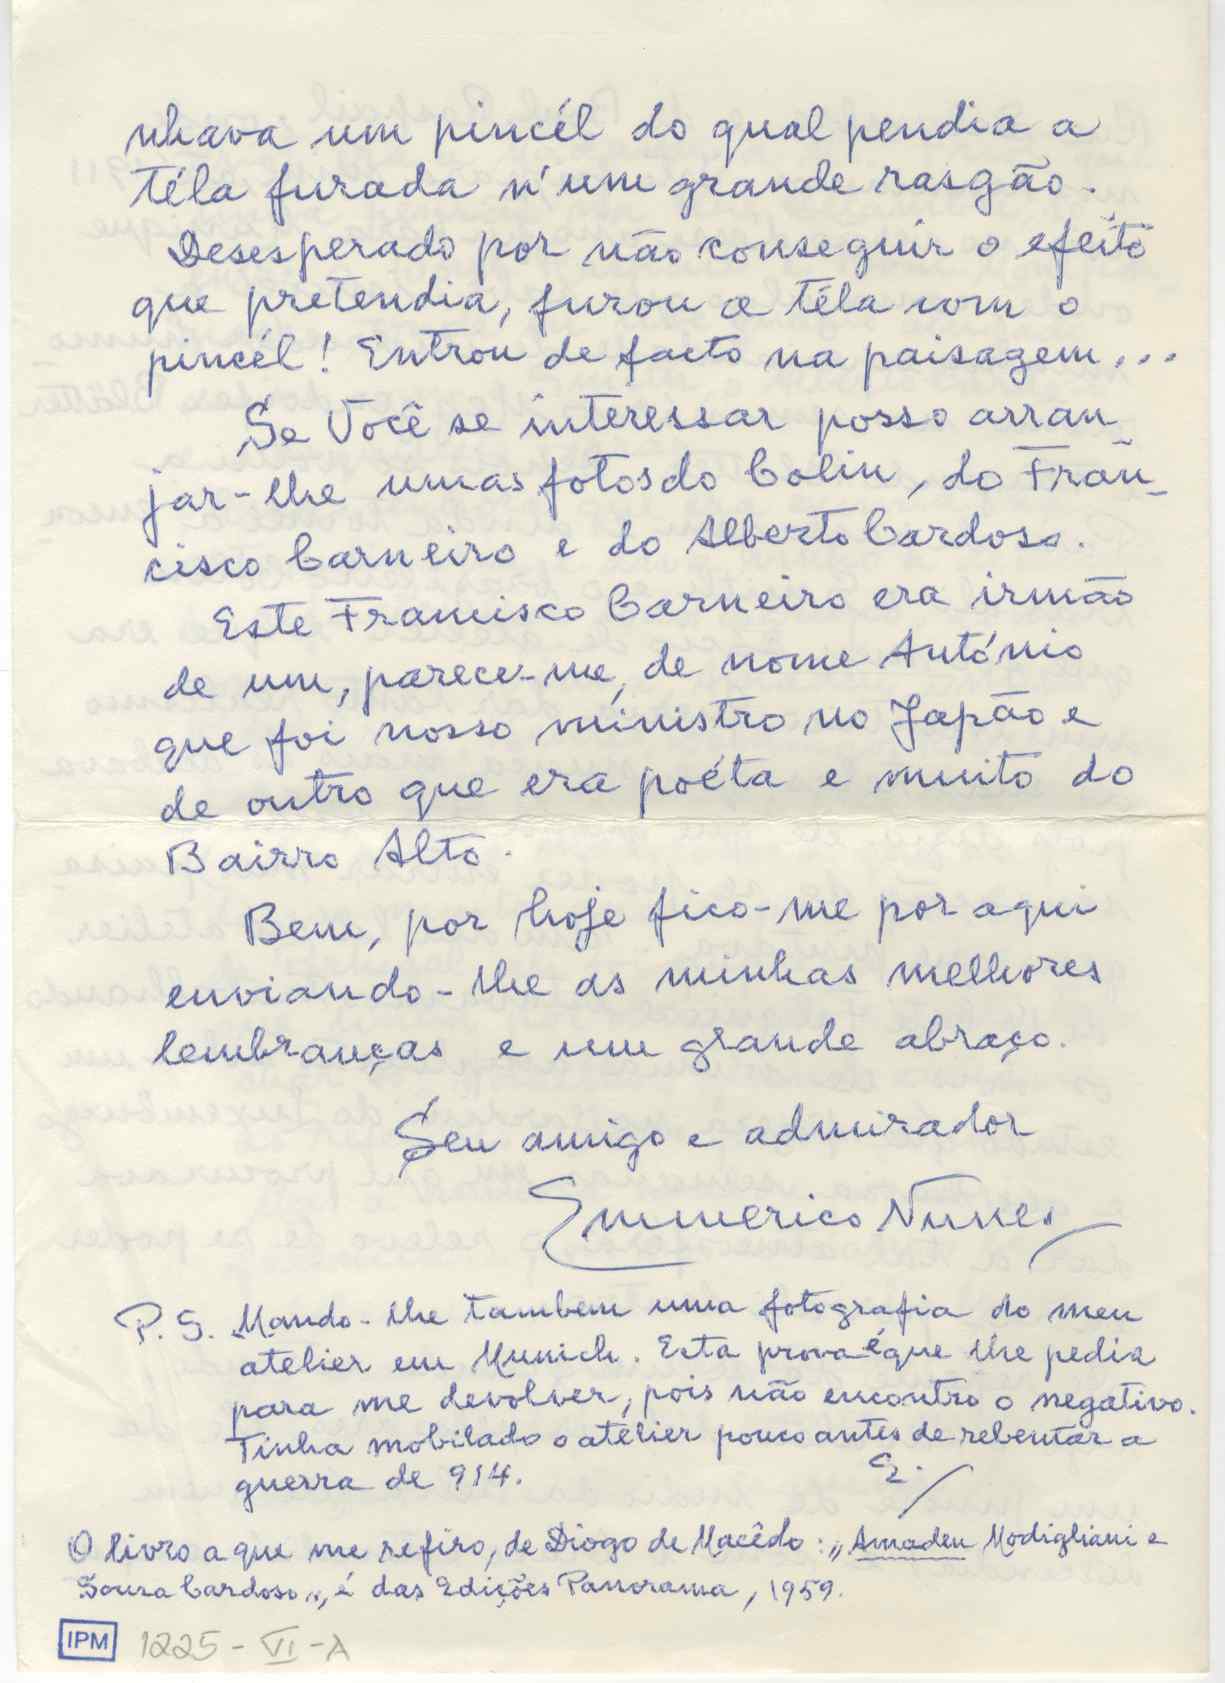 nhava um pincél do qual pendia a
téla furada n'um grande rasgão.
Desesperado por não conseguir o efeito
que pretendia, furou a téla com o
pincél! Entrou de facto na paisagem...
Se Você se interessar posso arran
jar-lhe umas fotos do Colin, do Fran-
cisco Carneiro e do Alberto Cardoso.
Este Francisco Carneiro era irmão
de um, parece-me, de nome António
que foi nosso ministro no Japão e
de outro que era poéta e muito do
Bairro Alto.
Bem, por hoje fico-me por aqui
enviando-lhe as minhas melhores
lembranças e um grande abraço.
Seu amigo e admirador
Emmerico Nunes
P.S. Mando-lhe tambem uma fotografia do meu
atelier em Munich. Esta prova é que lhe pedia
para me devolver, pois não encontro o negativo.
Tinha mobilado o atelier pouco antes de rebentar a
guerra de 914.
E.
O livro a que me refiro, de Diogo de Macêdo: „Amadeu Modigliani e
Souza Cardoso„, é das Edições Panorama, 1959.
IPM 1225-VI-A